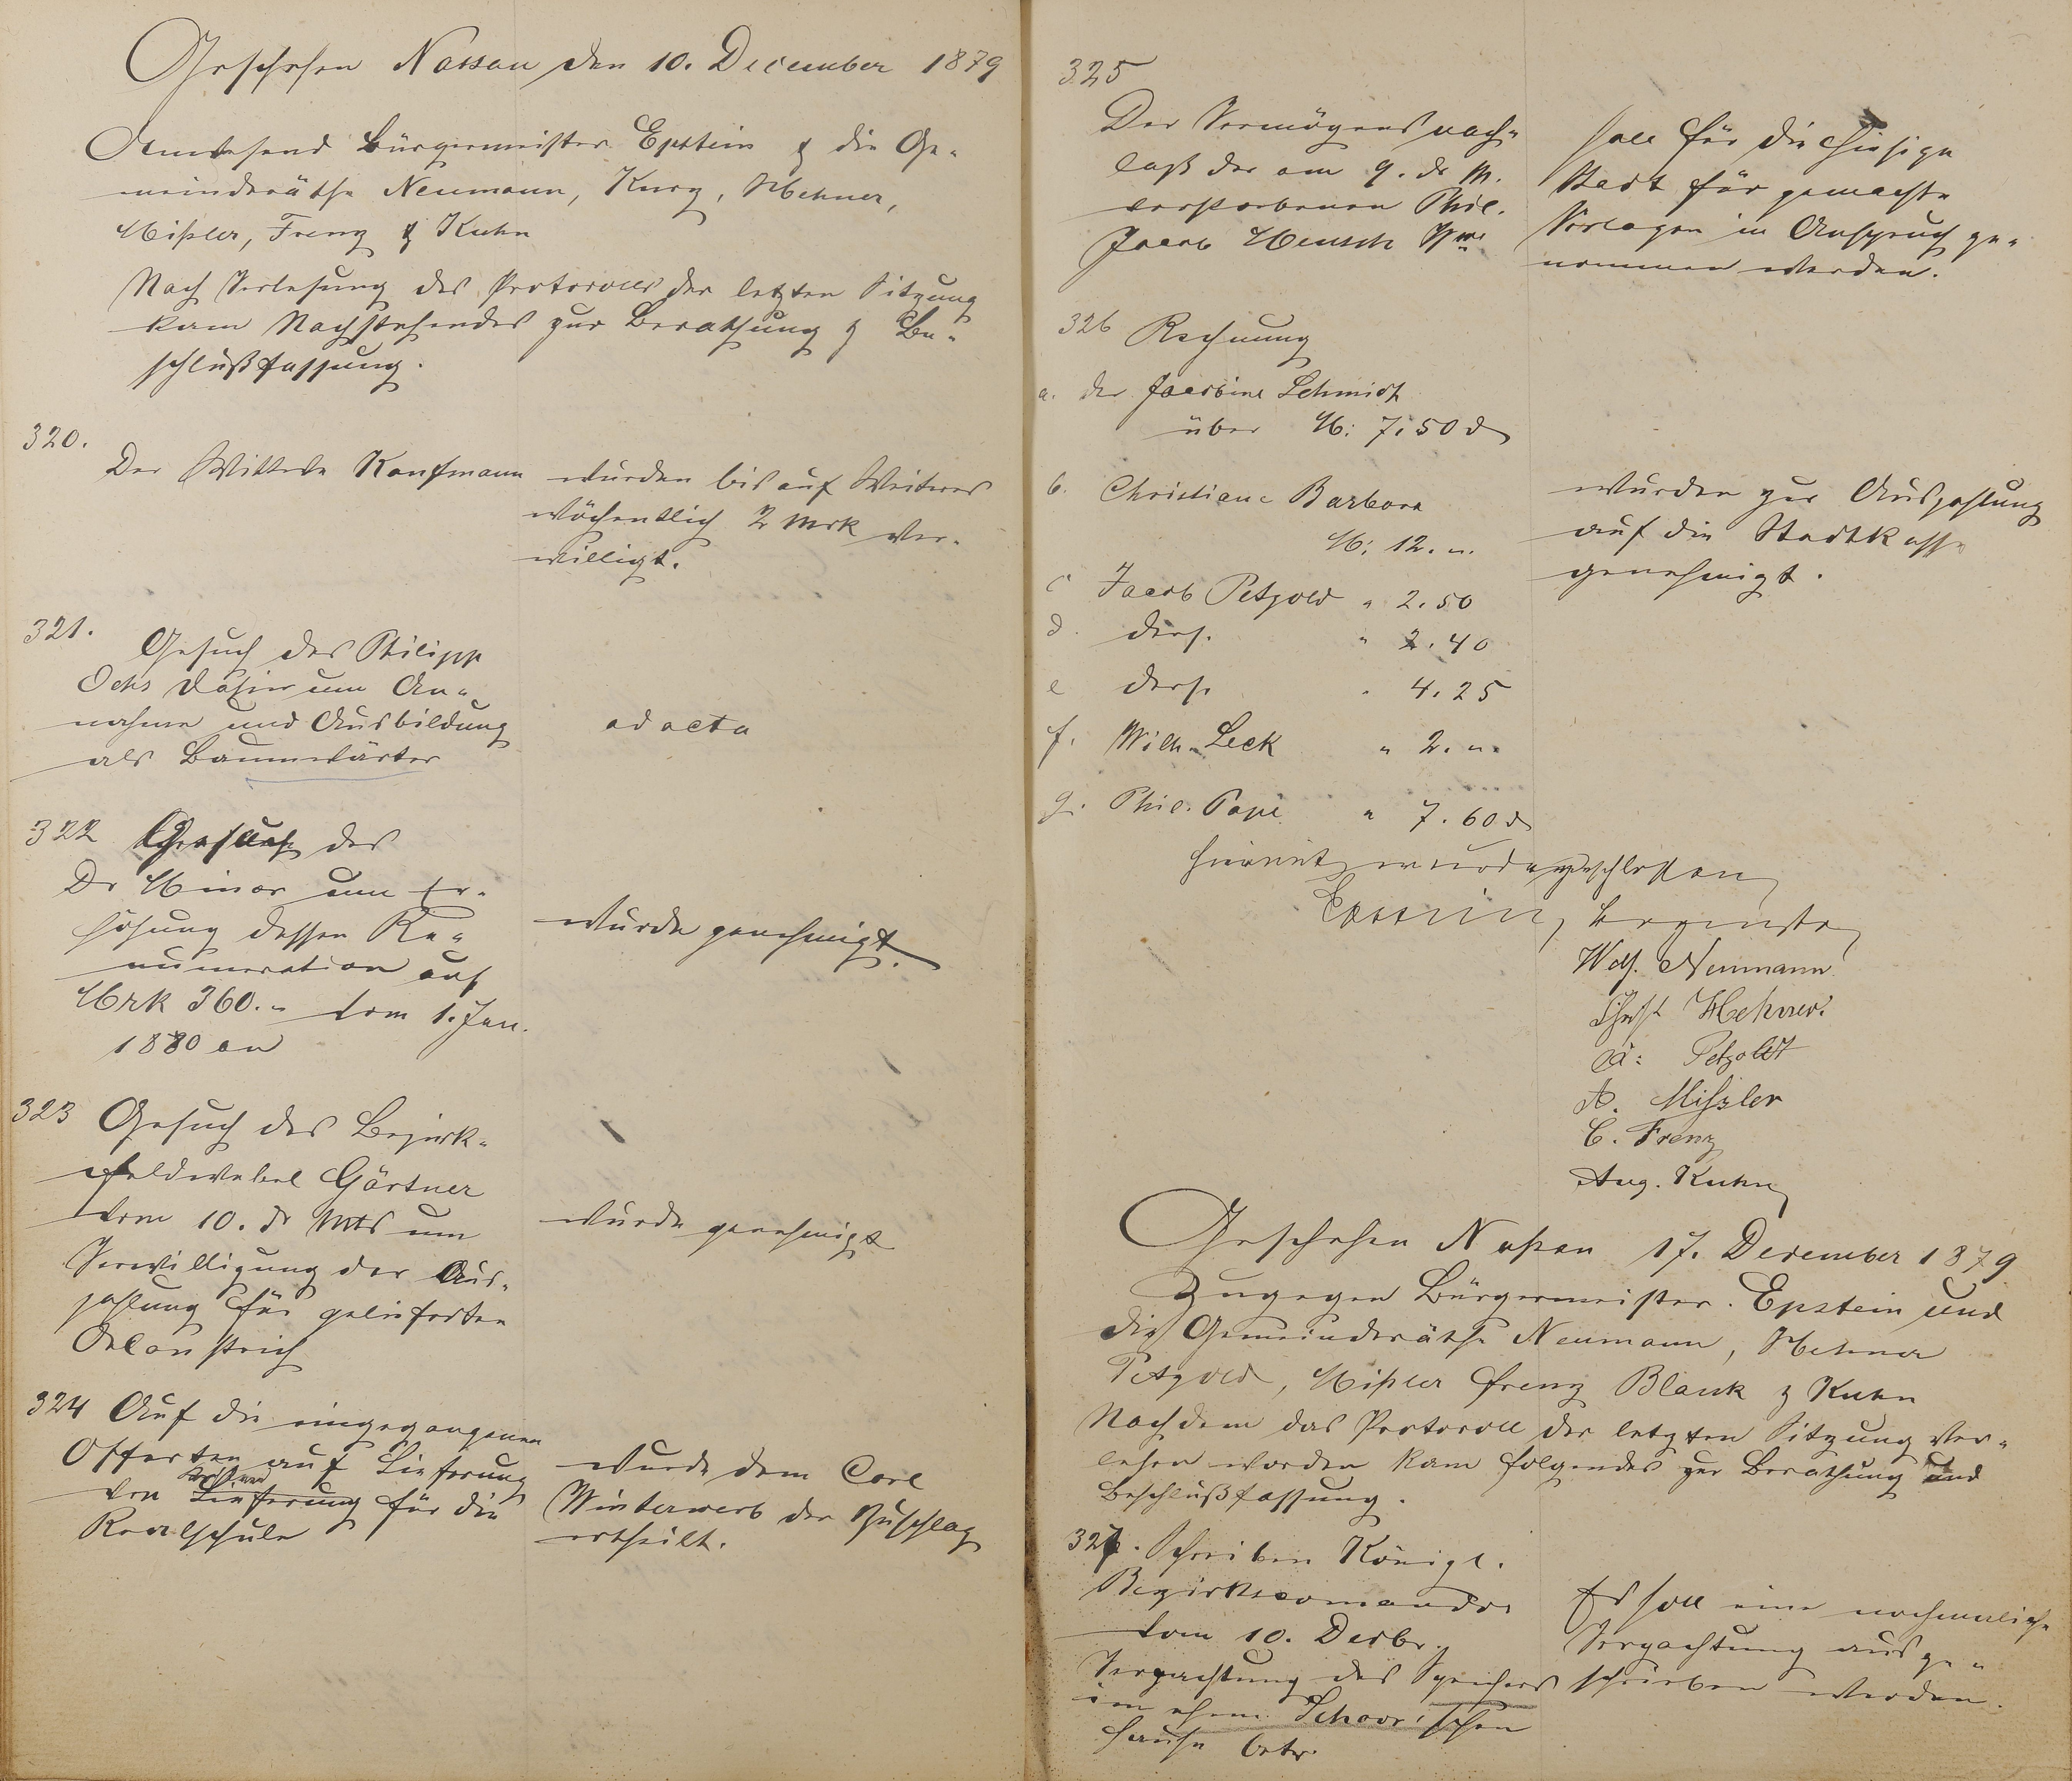 Geschehen Nassau den 10. December 1879
Anwesend Bürgermeister Epstein & die Ge-
meinderäthe Neumann, Kurz, Mehner,
Mißler, Frenz & Kuhn
Nach Verlesung des Protocolls der letzten Sitzung
kam Nachstehendes zur Berathung & Be-
schlußfassung.
320.
Der Wittwe Kaufmann
wurden bis auf Weiteres
wöchentlich 2 Mrk ver-
willigt.
321.
Gesuch des Philipp
Ochs dahier um An-
nahme und Ausbildung
als Baumwärter
ad acta
322 Gesuch des
Dr Minor um Er-
höhung dessen Re-
numeration auf
Mrk 360.- vom 1. Jan.
1880 an
wurde genehmigt.
323 Gesuch des Bezirk-
feldwebel Gärtner
vom 10. d Mts um
Verwilligung der Aus-
zahlung für gelieferten
Oelanstrich
wurde genehmigt
324 Auf die eingegangenen
Offerten auf Lieferung
von Lieferung für die
Realschule
wurde dem Carl
Winterwerb der Zuschlag
ertheilt.
325
Der Vermögensnach-
laß des am 9. ds M.
verstorbenen Phil.
Jacob Heusch
soll für die hiesige
Stadt für gemachte
Vorlagen in Anspruch ge-
nommen werden.
326 Rechnung
a. der Jacobine Schmidt
über M: 7.50 d
b. Christiane Barbara
M: 12. "
c Jacob Petzold " 2.50
d. ders. " 2.40
e ders. " 4.25
f. Wilh. Leck " 2. "
g. Phil. Pape " 7.60 d
wurden zur Auszahlung
auf die Stadtkasse
genehmigt.
Hiermit wurde geschlossen
Epstein, Bürgermstr
Neumann
Christ Mehner.
A: Petzoldt
A. Miszler
C. Frenz
Aug. Kuhn
Geschehen Naßau 17. December 1879
Zugegen Bürgermeister Epstein und
die Gemeinderäthe Neumann, Mehner
Petzold, Mißler Frenz Blank & Kuhn
Nachdem das Protocoll der letzten Sitzung ver-
lesen worden kam folgendes zur Berathung und
Beschlußfassung.
327. Schreiben Königl.
Bezirkscomandos
vom 10. Decbr.
Verpachtung des Speichers
im ehem. Schorr'schen
Hause betr.
Es soll eine nochmalige
Verpachtung ausge-
schrieben werden.